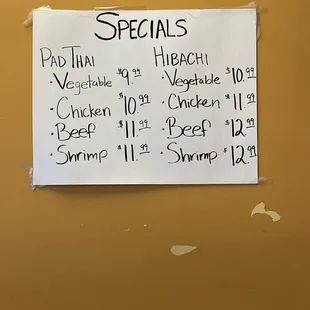 SPECIALS
PAD THAI HIBACHI
· Vegetable $9.99 · Vegetable $10.99
· Chicken $10.99 · Chicken $11.99
· Beef $11.99 · Beef $12.99
· Shrimp $11.99 · Shrimp $12.99